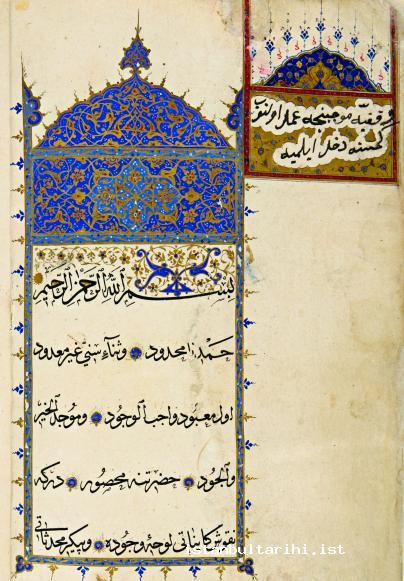 وقفيه موجبنجه عمل اولنوب
كمسنه دخل ايلميه
بسم الله الرحمن الرحيم
حمد نامحدود وثناء سني غير معدود
اول معبود واجب الوجود وموجد الخير
والجود حضرتنه محصور دركه
نقوش كايناتى لوحۀ وجوده وپيكر محدثاتى
istanbultarihi.ist